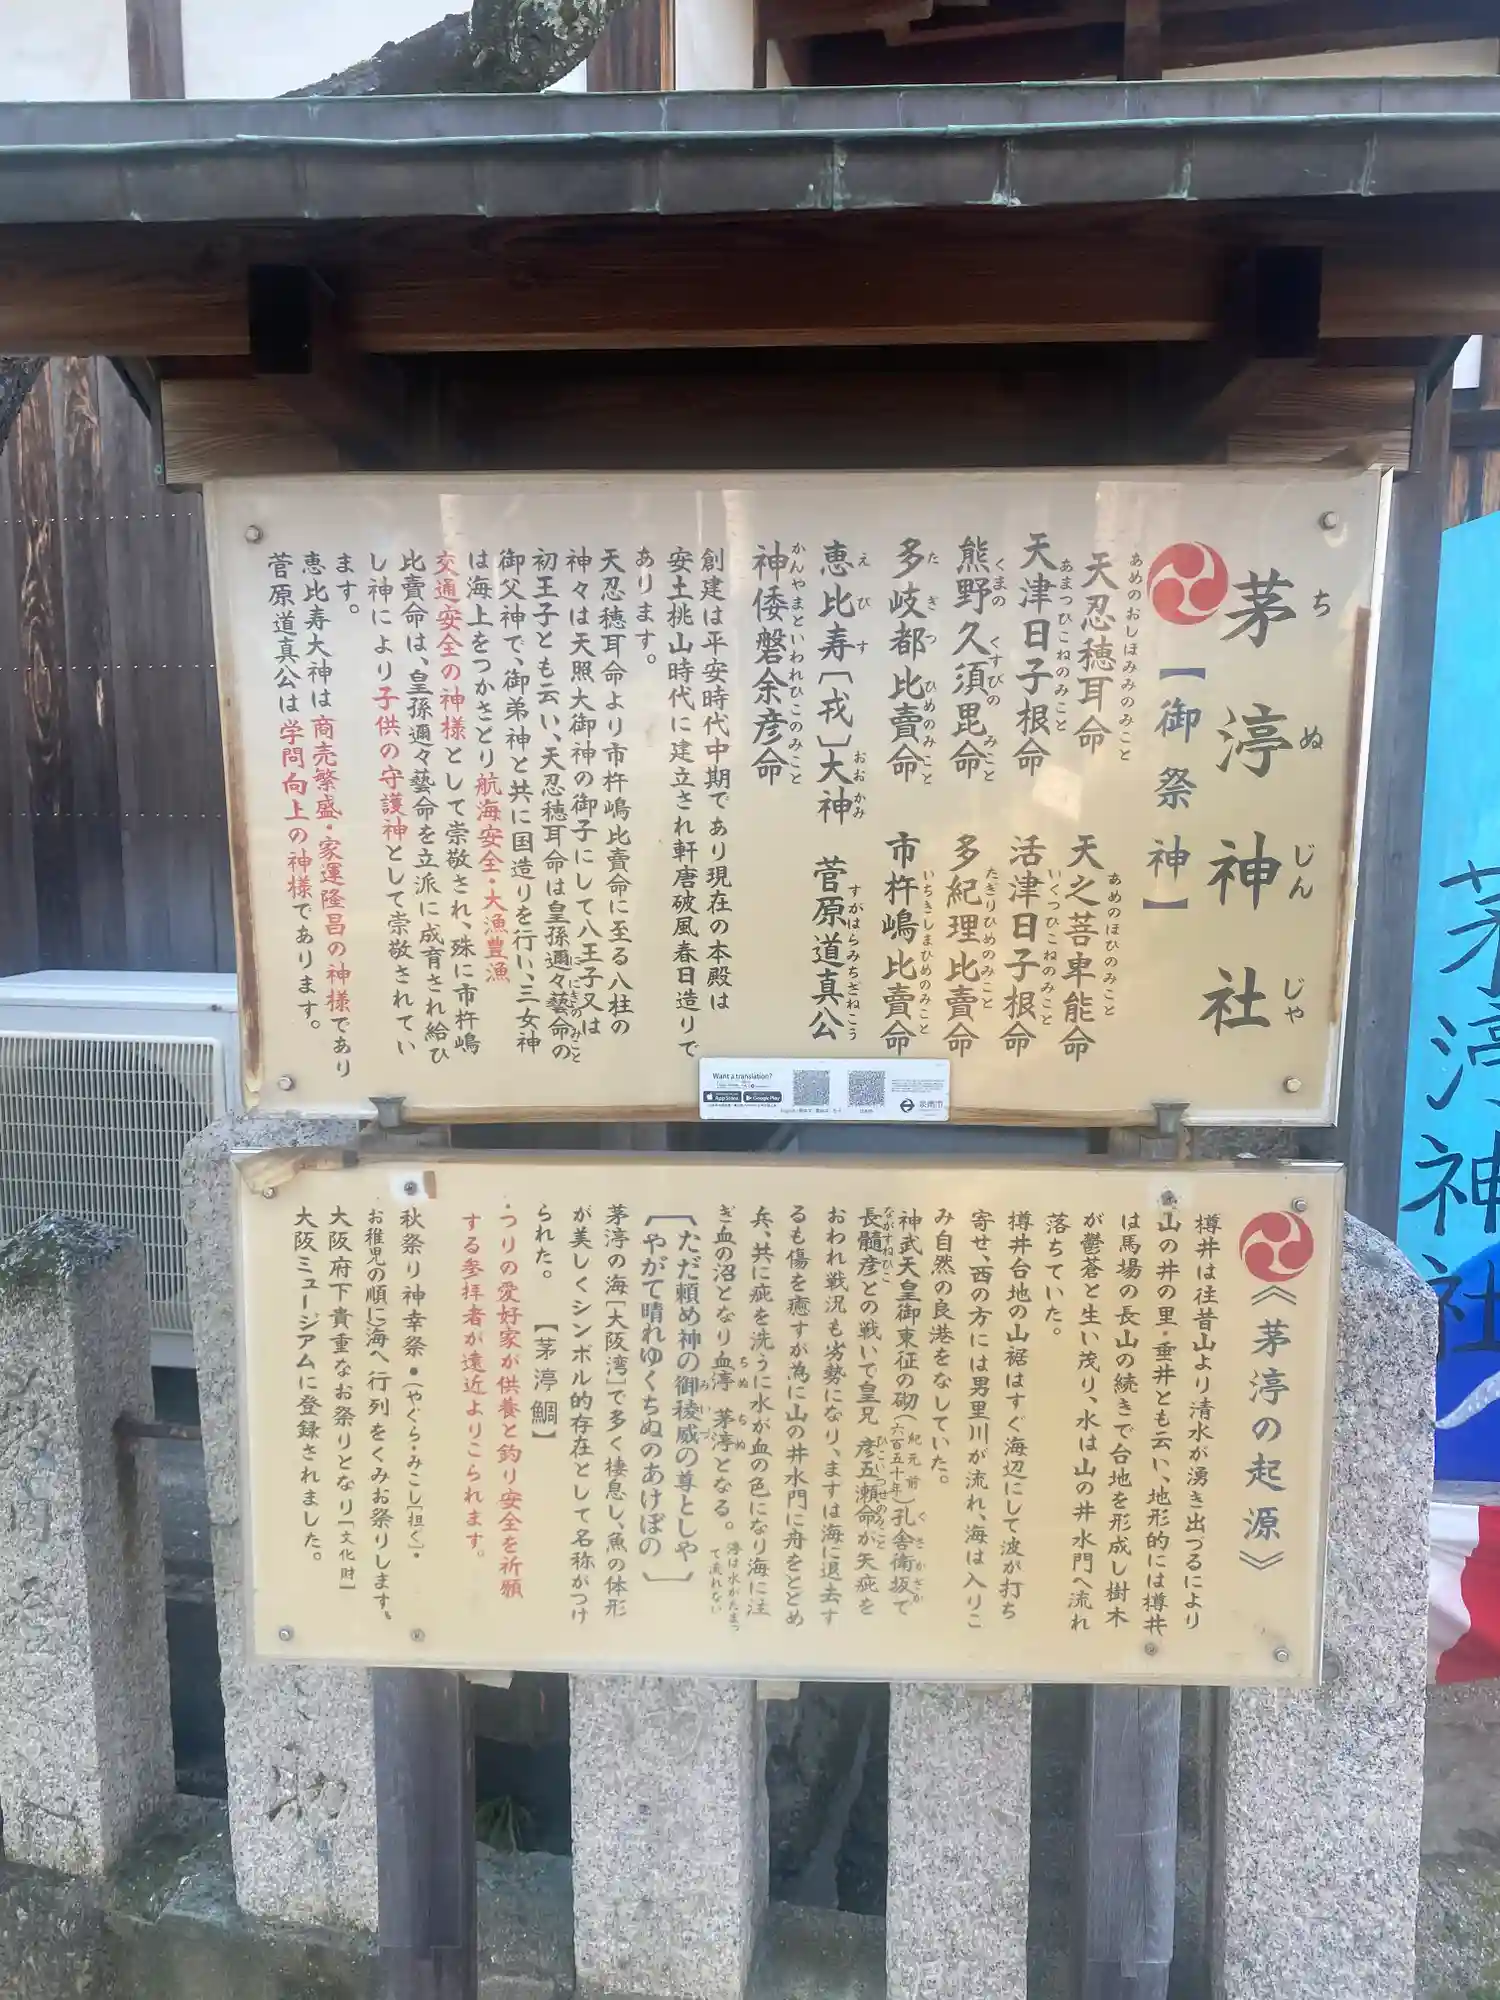 茅渟神社
ち ぬ じん じゃ
【御祭神】
天忍穂耳命
あめのおしほみみのみこと
天之菩卑能命
あめのほひのみこと
天津日子根命
あまつひこねのみこと
活津日子根命
いくつひこねのみこと
熊野久須毘命
くまの くすびの みこと
多紀理比賣命
たぎりひめのみこと
多岐都比賣命
た ぎ つ ひめのみこと
市杵嶋比賣命
いちきしまひめのみこと
恵比寿〔戎〕大神
え び す おお かみ
菅原道真公
すがはらみちざねこう
神倭磐余彦命
かんやまといわれひこのみこと
創建は平安時代中期であり現在の本殿は
安土桃山時代に建立され軒唐破風春日造りで
あります。
天忍穂耳命より市杵嶋比賣命に至る八柱の
神々は天照大御神の御子にして八王子又は
初王子とも云い、天忍穂耳命は皇孫邇々藝命の
ににぎのみこと
御父神で、御弟神と共に国造りを行い、三女神
は海上をつかさどり航海安全・大漁豊漁
交通安全の神様として崇敬され、殊に市杵嶋
比賣命は、皇孫邇々藝命を立派に成育され給ひ
し神により子供の守護神として崇敬されてい
ます。
恵比寿大神は商売繁盛・家運隆昌の神様であり
菅原道真公は学問向上の神様であります。
Want a translation?
App Store
Google Play
泉南市
《茅渟の起源》
樽井は往昔山より清水が湧き出づるにより
山の井の里・垂井とも云い、地形的には樽井
は馬場の長山の続きで台地を形成し樹木
が鬱蒼と生い茂り、水は山の井水門へ流れ
落ちていた。
樽井台地の山裾はすぐ海辺にして波が打ち
寄せ、西の方には男里川が流れ、海は入りこ
み自然の良港をなしていた。
神武天皇御東征の砌(紀元前六百五十年)孔舎衛坂で
くさかざか
長髓彦との戦いで皇兄 彦五瀬命が矢疵を
ながすねひこ
ひこいつせのみこと
おわれ戦況も劣勢になり、ますは海に退去す
るも傷を癒すが為に山の井水門に舟をとどめ
兵、共に疵を洗うに水が血の色になり海に注
ぎ血の沼となり血渟 茅渟となる。
ちぬ ちぬ
渟は水がたまって流れない
〔ただ頼め神の御稜威の尊としや
みいつ
やがて晴れゆくちぬのあけぼの〕
茅渟の海[大阪湾]で多く棲息し、魚の体形
が美しくシンボル的存在として名称がつけ
られた。 【茅渟鯛】
・つりの愛好家が供養と釣り安全を祈願
する参拝者が遠近よりこられます。
秋祭り神幸祭・(やぐら・みこし[担ぐ]・
お稚児の順に海へ行列をくみお祭りします。
大阪府下貴重なお祭りとなり[文化財]
大阪ミュージアムに登録されました。
茅渟神社